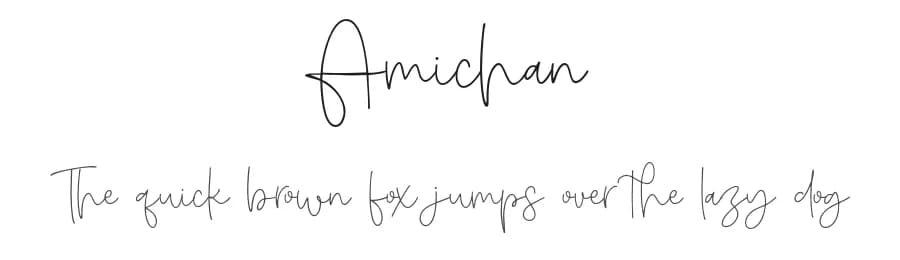 Amichan
The quick brown fox jumps over The lazy dog